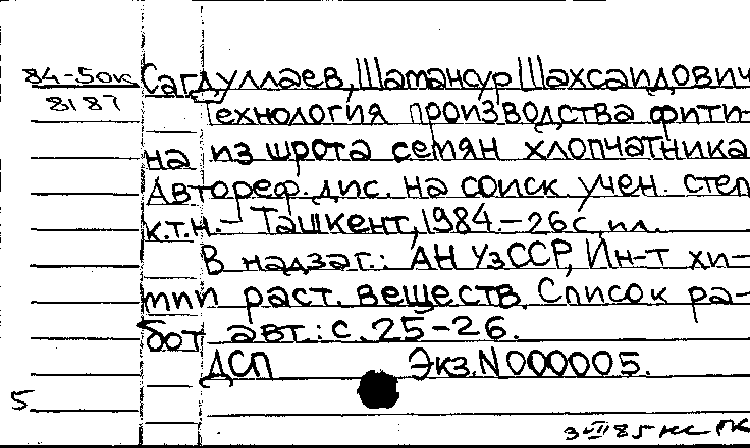 84-5ок Сагдуллаев, Шамансур Шахсаидович
8187
Технология производства фити-
на из шрота семян хлопчатника
Автореф. дис. на соиск. учен. степ
к.т.н.- Ташкент, 1984.-26с. ил.
В надзаг.: АН УзССР, Ин-т хи-
мии раст. веществ. Список ра-
бот авт.: с. 25-26.
ДСП Экз. N000005.
5